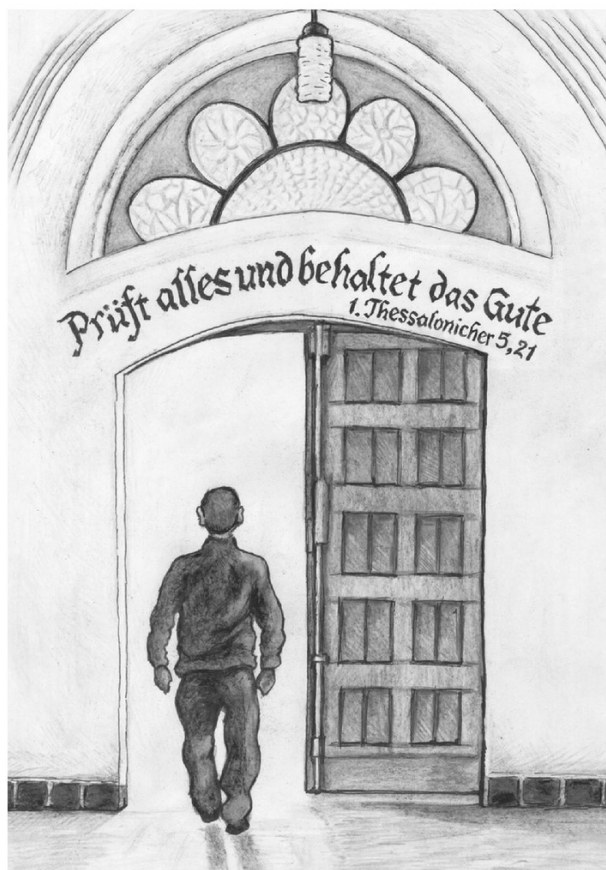 Prüft alles und behaltet das Gute
1. Thessalonicher 5, 21